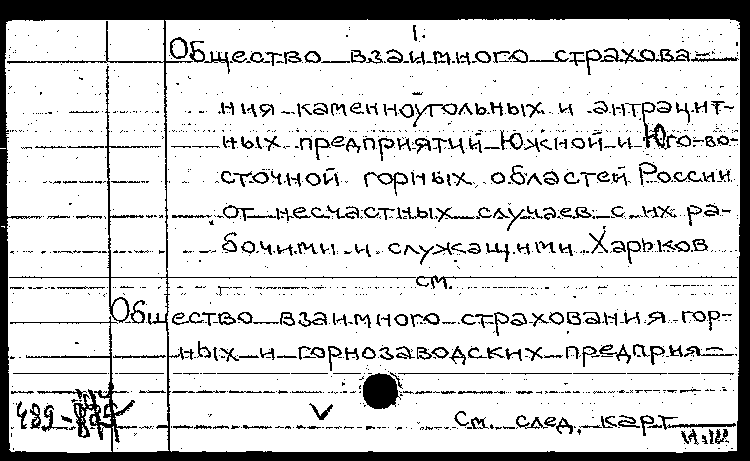 1.
Общество взаимного страхова-
ния каменноугольных и антрацит-
ных предприятий Южной и Юго-во-
сточной горных областей России
от несчастных случаев с их ра-
бочими и служащими Харьков
см.
Общество взаимного страхования гор-
ных и горнозаводских предприя-
489-
См. след. карт